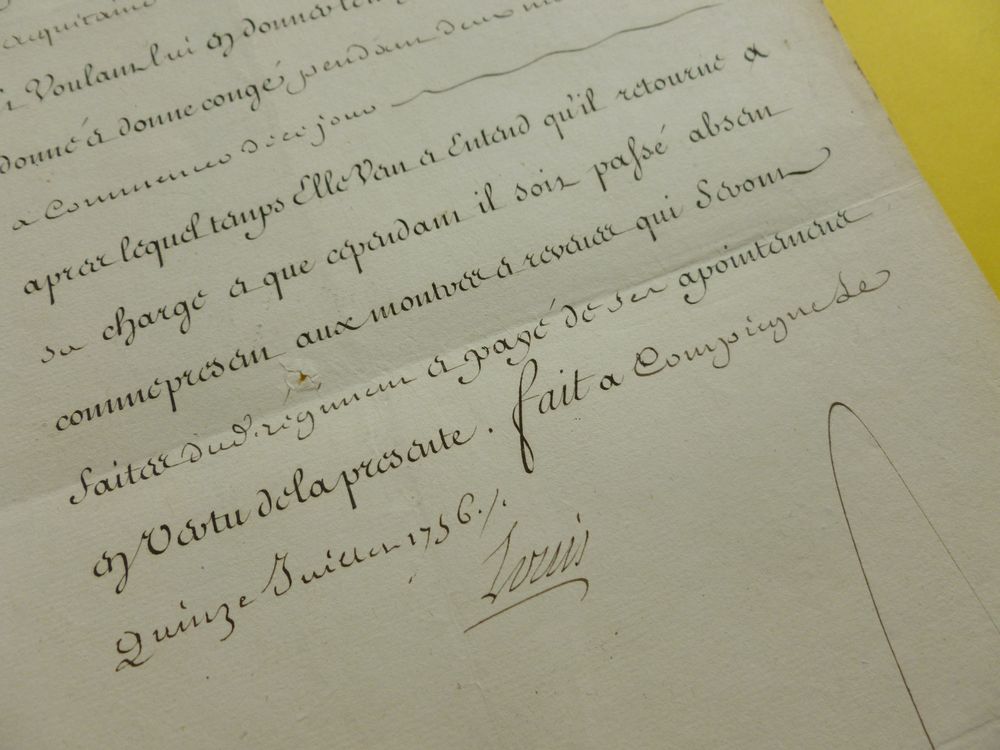 acquitaine
Voulant lui en donner le
donné & donne congé pendant deux
a Commencer de ce jour
apres lequel temps Elle Veut & Entend qu'il retourne a
sa charge & que cependant il soit passé absent
comme present aux montres & reveues qui Seront
faites dud. regiment & payé de ses apointemens
en Vertu de la presente . fait a Compiegne Le
Quinze Juillet 1756 ./.
Louis